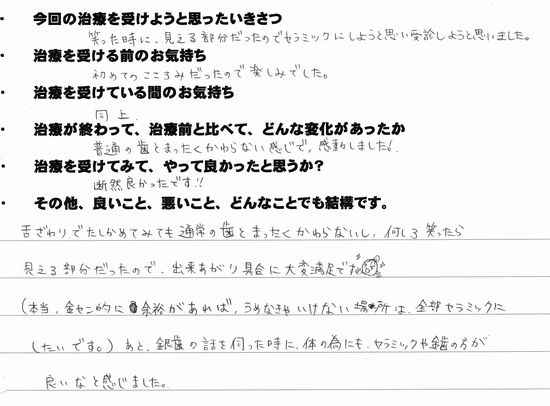 ・ 今回の治療を受けようと思ったいきさつ
笑った時に、見える部分だったのでセラミックにしようと思い受診しようと思いました。
・ 治療を受ける前のお気持ち
初めてのこころみだったので楽しみでした。
・ 治療を受けている間のお気持ち
同上
・ 治療が終わって、治療前と比べて、どんな変化があったか
普通の歯とまったくかわらない感じで、感動しました!
・ 治療を受けてみて、やって良かったと思うか?
断然良かったです!!
・ その他、良いこと、悪いこと、どんなことでも結構です。
舌ざわりでたしかめてみても通常の歯とまったくかわらないし、何しろ笑ったら
見える部分だったので、出来あがり具合に大変満足です
(本当、金セン的に余裕があれば、うめなきゃいけない場所は、全部セラミックに
したいです。) あと、銀歯の話を伺った時に、体の為にも、セラミックや金歯の方が
良いなと感じました。